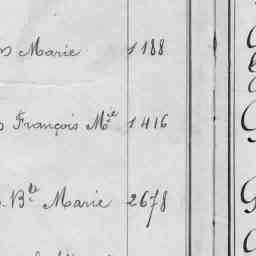 Marie 1188
François M.ie 1416
Bte Marie 2678